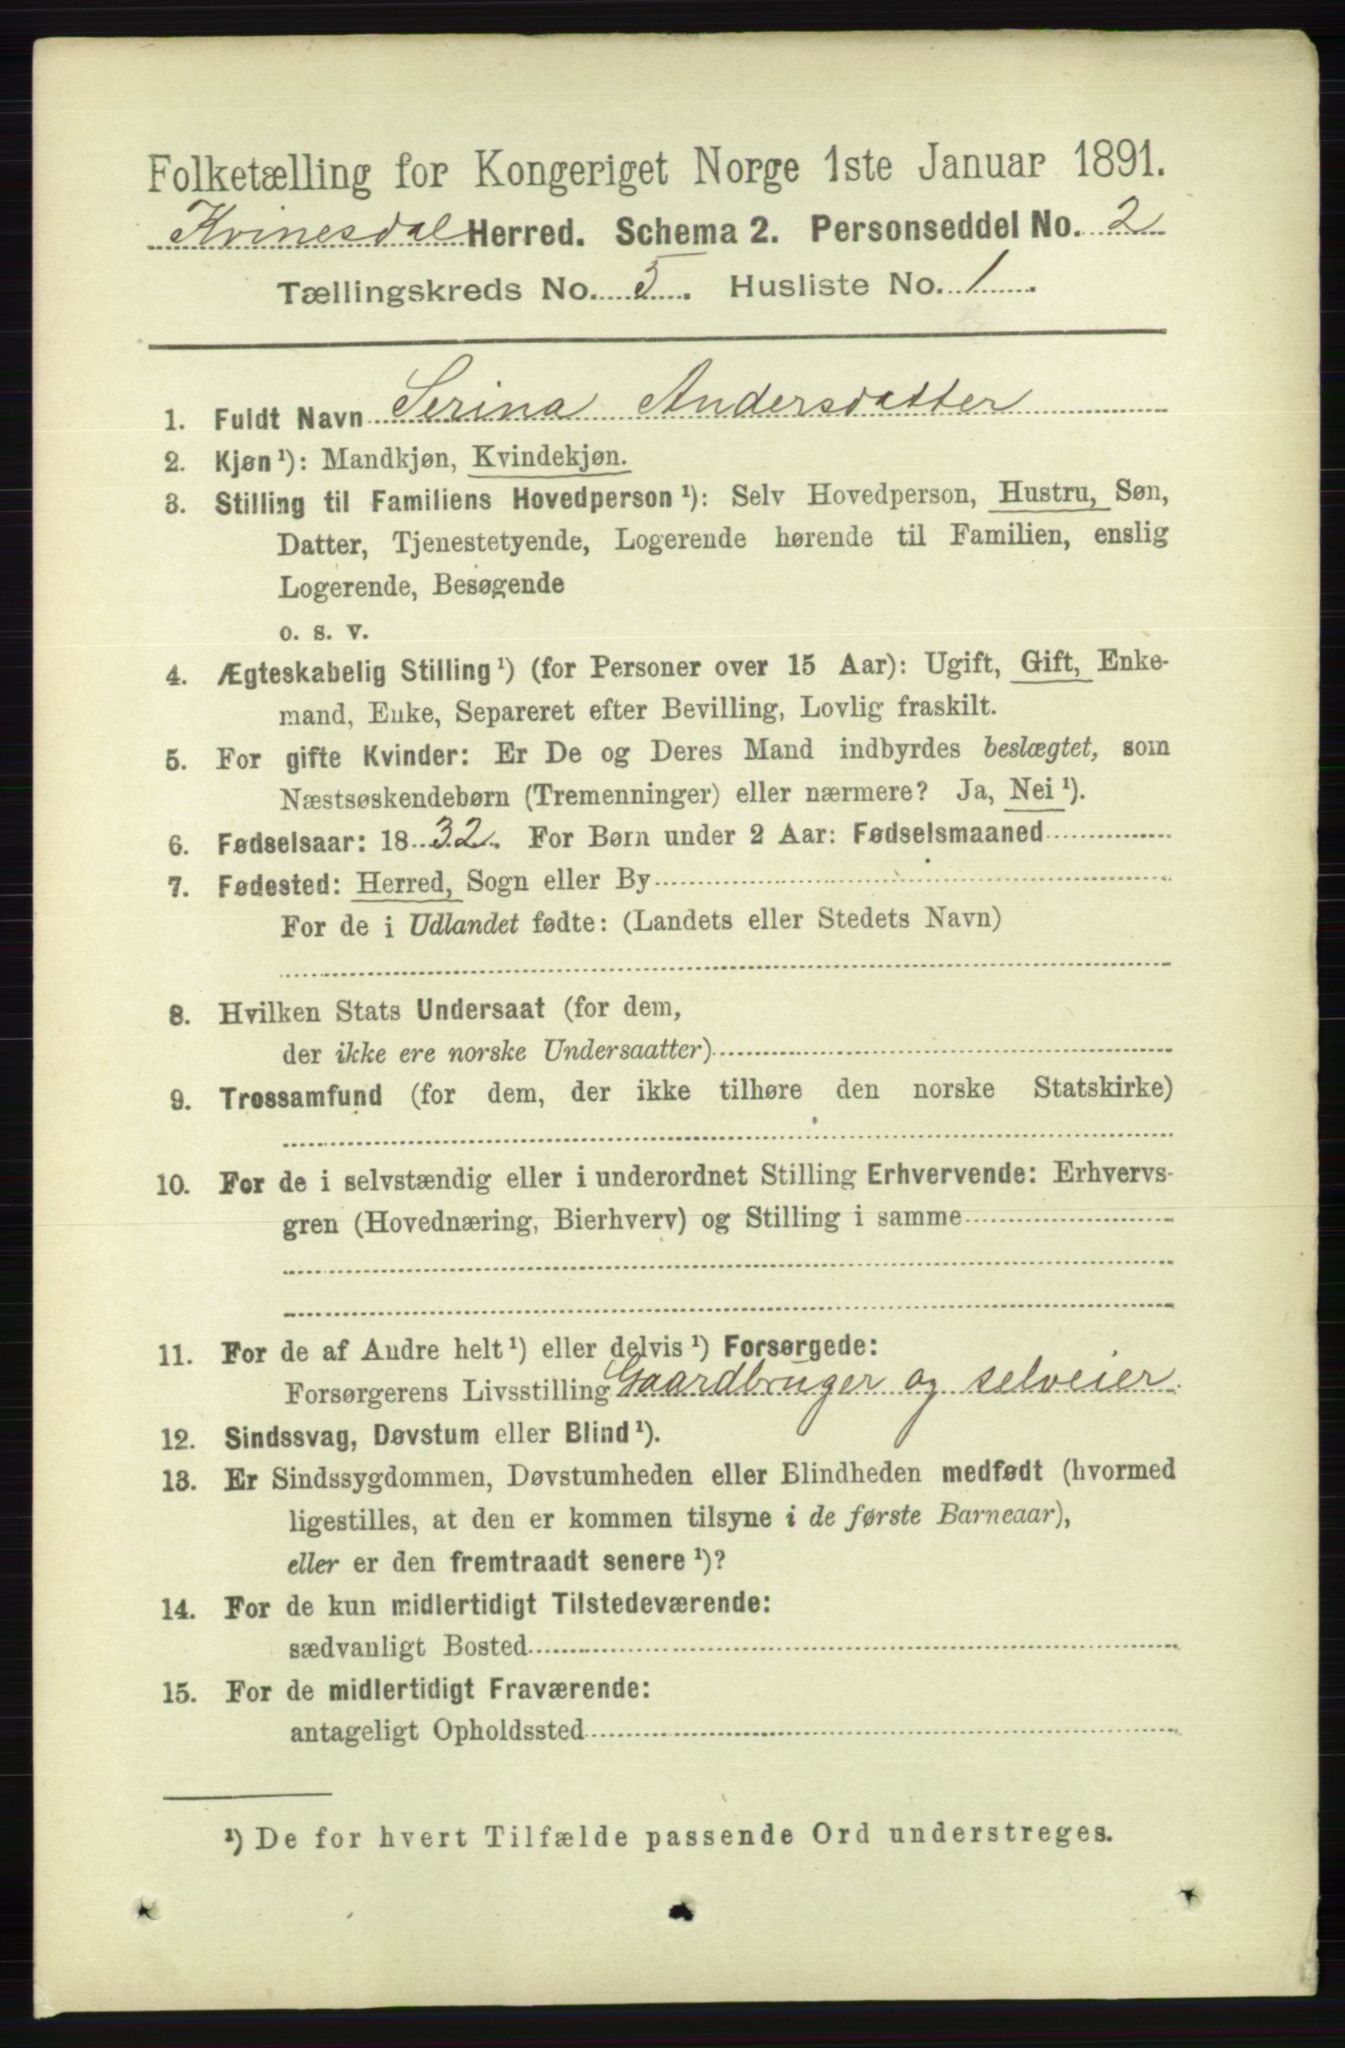 Folketælling for Kongeriget Norge 1ste Januar 1891.
Kvinesdal Herred. Schema 2. Personseddel No. 2
Tællingskreds No. 5. Husliste No. 1.
1. Fuldt Navn Serina Andersdatter
2. Kjøn¹): Mandkjøn, Kvindekjøn.
3. Stilling til Familiens Hovedperson¹): Selv Hovedperson, Hustru, Søn,
Datter, Tjenestetyende, Logerende hørende til Familien, enslig
Logerende, Besøgende
o. s. v.
4. Ægteskabelig Stilling¹) (for Personer over 15 Aar): Ugift, Gift, Enke-
mand, Enke, Separeret efter Bevilling, Lovlig fraskilt.
5. For gifte Kvinder: Er De og Deres Mand indbyrdes beslægtet, som
Næstsøskendebørn (Tremenninger) eller nærmere? Ja, Nei¹).
6. Fødselsaar: 1832. For Børn under 2 Aar: Fødselsmaaned
7. Fødested: Herred, Sogn eller By
For de i Udlandet fødte: (Landets eller Stedets Navn)
8. Hvilken Stats Undersaat (for dem,
der ikke ere norske Undersaatter)
9. Trossamfund (for dem, der ikke tilhøre den norske Statskirke)
10. For de i selvstændig eller i underordnet Stilling Erhvervende: Erhvervs-
gren (Hovednæring, Bierhverv) og Stilling i samme
11. For de af Andre helt¹) eller delvis¹) Forsørgede:
Forsørgerens Livsstilling Gaardbruger og selveier.
12. Sindssvag, Døvstum eller Blind¹).
13. Er Sindssygdommen, Døvstumheden eller Blindheden medfødt (hvormed
ligestilles, at den er kommen tilsyne i de første Barneaar),
eller er den fremtraadt senere¹)?
14. For de kun midlertidigt Tilstedeværende:
sædvanligt Bosted
15. For de midlertidigt Fraværende:
antageligt Opholdssted
¹) De for hvert Tilfælde passende Ord understreges.